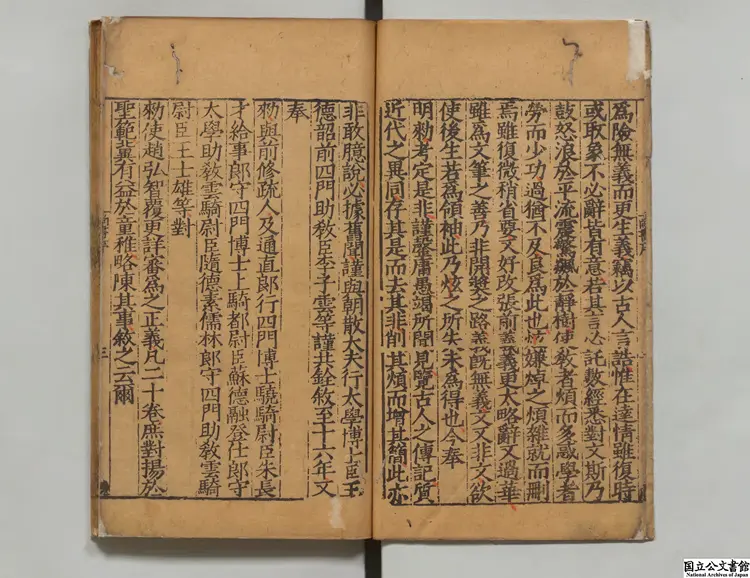 爲險無義而更生義竊以古人言誥惟在達情雖復時
或取象不必辭皆有意若其言必託數經悉對文斯乃
鼓怒浪於平流震驚飆於靜樹使敎者煩而多惑學者
勞而少功過猶不及良爲此也炫嫌焯之煩雜就而刪
焉雖復微稍省要又好改張前義義更太略辭又過華
雖爲文筆之善乃非開奬之路義旣無義文又非文欲
使後生若爲領袖此乃炫之所失未爲得也今奉
明勑考定是非謹罄庸愚竭所聞見覽古人之傳記質
近代之異同存其是而去其非削其煩而增其簡此亦
非敢臆說必據舊聞謹與朝散大夫行太學博士臣王
德韶前四門助敎臣李子雲等謹共銓敘至十六年又
奉
勑與前修疏人及通直郞行四門博士驍騎尉臣朱長
才給事郞守四門博士上騎都尉臣蘇德融登仕郞守
太學助敎雲騎尉臣隨德素儒林郞守四門助敎雲騎
尉臣王士雄等對
勑使趙弘智覆更詳審爲之正義凡二十卷庶對揚於
聖範冀有益於童稚略陳其事敘之云爾
三
国立公文書館
National Archives of Japan